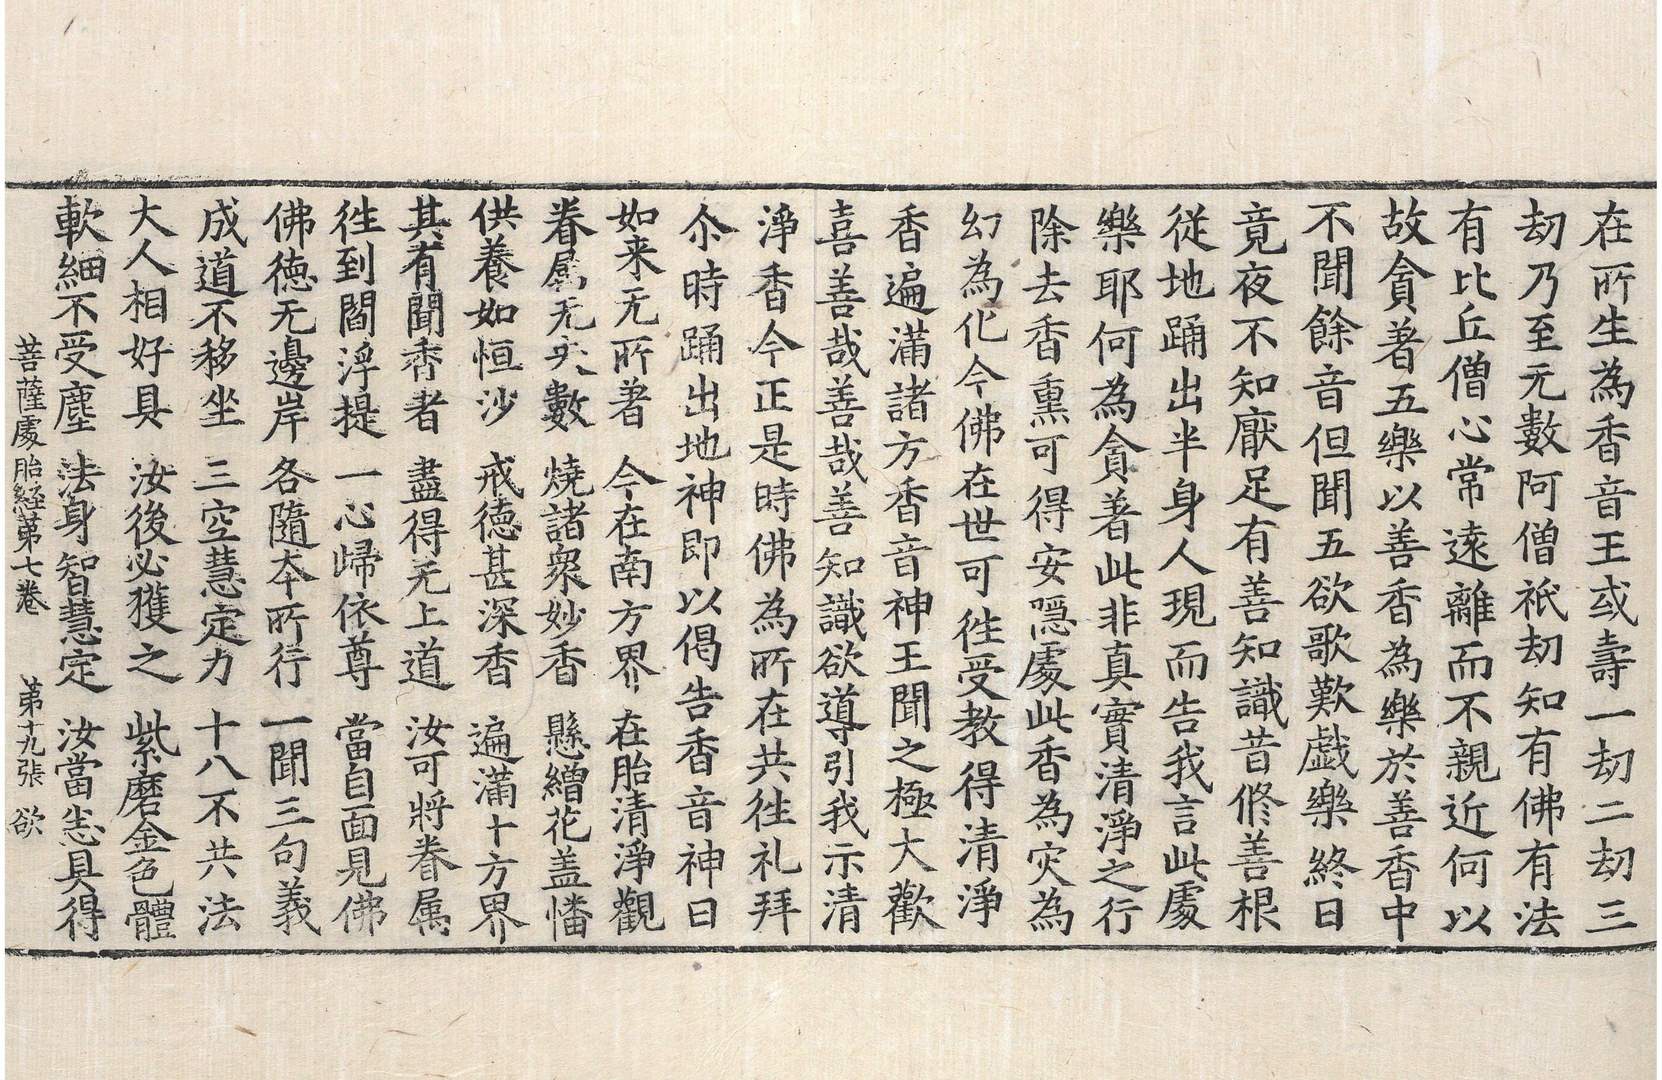 在所生為香音王或壽一劫二劫三
劫乃至无數阿僧祇劫知有佛有法
有比丘僧心常遠離而不親近何以
故貪著五樂以善香為樂於善香中
不聞餘音但聞五欲歌歎戲樂終日
竟夜不知厭足有善知識昔修善根
從地踊出半身人現而告我言此處
樂耶何為貪著此非真實清淨之行
除去香熏可得安隱處此香為灾為
幻為化今佛在世可徃受教得清淨
香遍滿諸方香音神王聞之極大歡
喜善哉善哉善知識欲導引我示清
淨香今正是時佛為所在共徃礼拜
尒時踊出地神即以偈告香音神曰
如来无所著 今在南方界 在胎清淨觀
眷属无央數 燒諸衆妙香 懸繒花盖幡
供養如恒沙 戒德甚深香 遍滿十方界
其有聞香者 盡得无上道 汝可將眷属
徃到閻浮提 一心歸依尊 當自面見佛
佛德无邊岸 各隨夲所行 一聞三句義
成道不移坐 三空慧定力 十八不共法
大人相好具 汝後必獲之 紫磨金色體
軟細不受塵 法身智慧定 汝當悉具得
菩薩處胎經第七卷 第十九張 欲